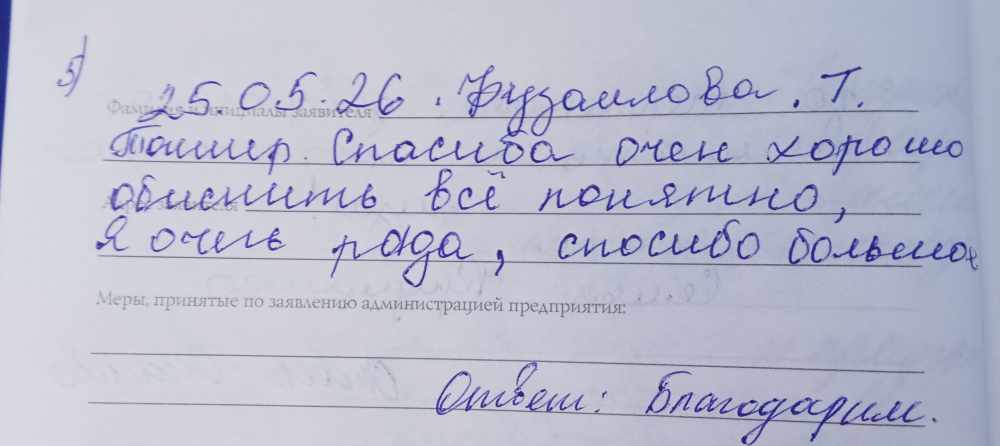 5)
25.05.26. Фузаилова. Т.
Фамилия и инициалы заявителя
Ташир. Спасиба очен хорошо
обиснить всё понятно,
Я очень рада, спосибо большое
Меры, принятые по заявлению администрацией предприятия:
Ответ: Благодарим.